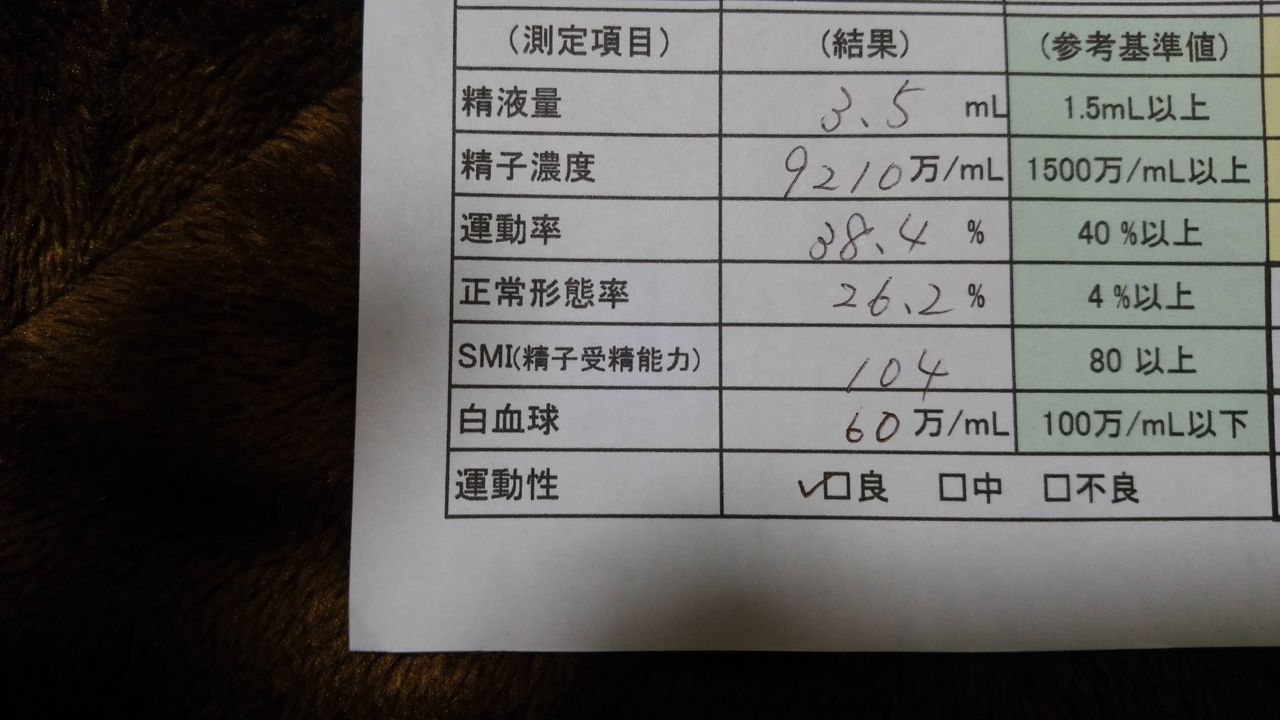 （測定項目） （結果） （参考基準値）
精液量 3.5 mL 1.5mL以上
精子濃度 9210万/mL 1500万/mL以上
運動率 38.4 % 40 %以上
正常形態率 26.2 % 4 %以上
SMI(精子受精能力) 104 80 以上
白血球 60 万/mL 100万/mL以下
運動性 ✓□良 □中 □不良